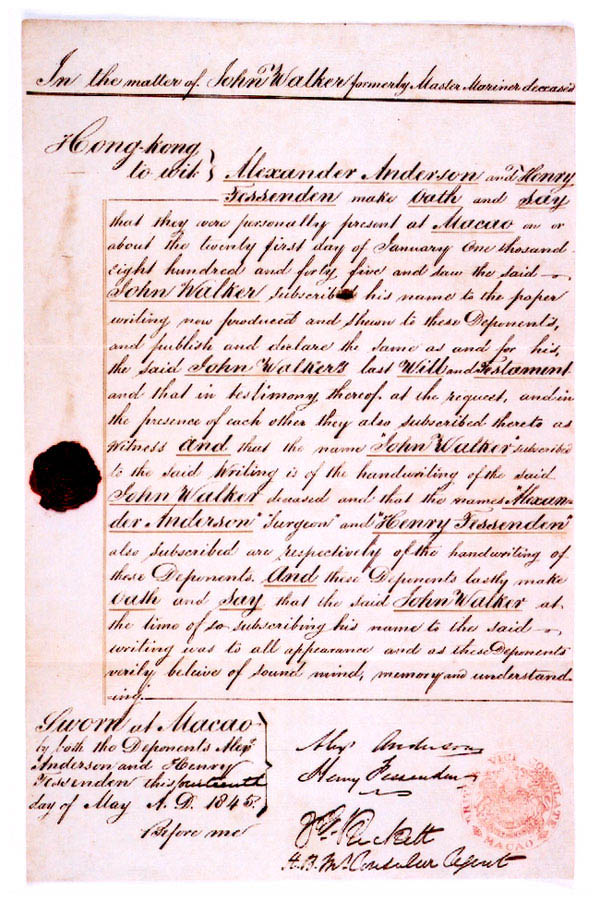 In the matter of John Walker formerly Master Mariner deceased
Hong-kong
to wit } Alexander Anderson and Henry
Fessenden make Oath and Say
that they were personally present at Macao on or
about the twenty first day of January One thousand
Eight hundred and forty five and saw the said
John Walker subscribe his name to the paper
writing now produced and shewn to these Deponents,
and publish and declare the same as and for his,
the said John Walker's last Will and Testament
and that in testimony thereof at the request, and in
the presence of each other they also subscribed thereto as
Witness And that the name "John Walker" subscribed
to the said Writing is of the handwriting of the said
John Walker deceased and that the names "Alexan-
der Anderson" "Surgeon" and "Henry Fessenden"
also subscribed are respectively of the handwriting of
these Deponents. And these Deponents lastly make
Oath and Say that the said John Walker at
the time of so subscribing his name to the said
writing was to all appearance and as these Deponents
verily beleive of sound mind, memory and understand-
ing.
Sworn at Macao
by both the Deponents Alexr
Anderson and Henry
Fessenden this fourteenth
day of May A.D. 1845.
Before me
Alexr Anderson
Henry Fessenden
Rickett
H.B.M's Consular Agent
VICE CONSULATE
MACAO